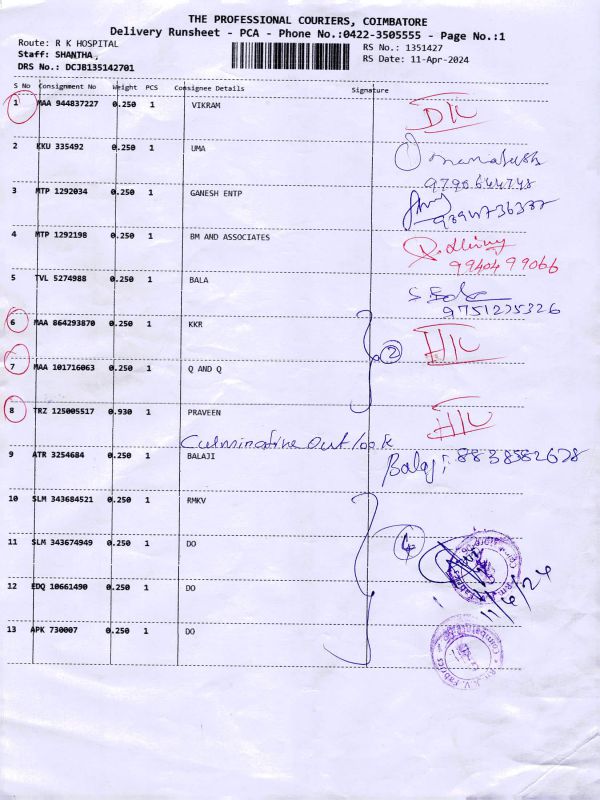 THE PROFESSIONAL COURIERS, COIMBATORE
Delivery Runsheet - PCA - Phone No.:0422-3505555 - Page No.:1
Route: R K HOSPITAL
RS No.: 1351427
Staff: SHANTHA ,
RS Date: 11-Apr-2024
DRS No.: DCJB135142701
S No Consignment No Weight PCS Consignee Details Signature
1 MAA 944837227 0.250 1 VIKRAM
2 KKU 335492 0.250 1 UMA
3 MTP 1292034 0.250 1 GANESH ENTP
4 MTP 1292198 0.250 1 BM AND ASSOCIATES
9940499066
5 TVL 5274988 0.250 1 BALA
9751235326
6 MAA 864293870 0.250 1 KKR
2
7 MAA 101716063 0.250 1 Q AND Q
8 TRZ 125005517 0.930 1 PRAVEEN
Culminative Outlook
9 ATR 3254684 0.250 1 BALAJI
Balaji 8838582678
10 SLM 343684521 0.250 1 RMKV
4
11 SLM 343674949 0.250 1 DO
12 EDQ 10661490 0.250 1 DO
11/4/24
13 APK 730007 0.250 1 DO